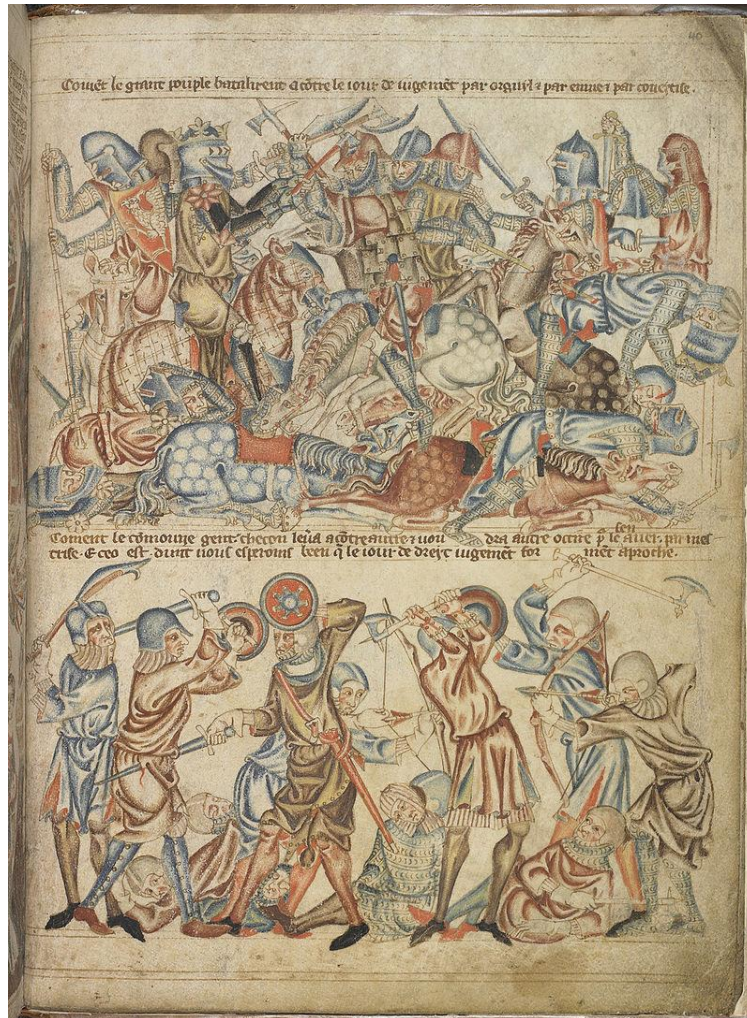 40
Coment le graunt poeple bataillerent acōtre le iour de iugemēt par orguil ⁊ par enuie ⁊ par coueitise.
Coment le cōmoune gent checon leua acōtre autre ⁊ uou dra autre occire p̄ le sen auer par mes
trise. E ceo est dunt nous esperoms been q̄ le iour de dreyt iugemēt for mēt aproche.